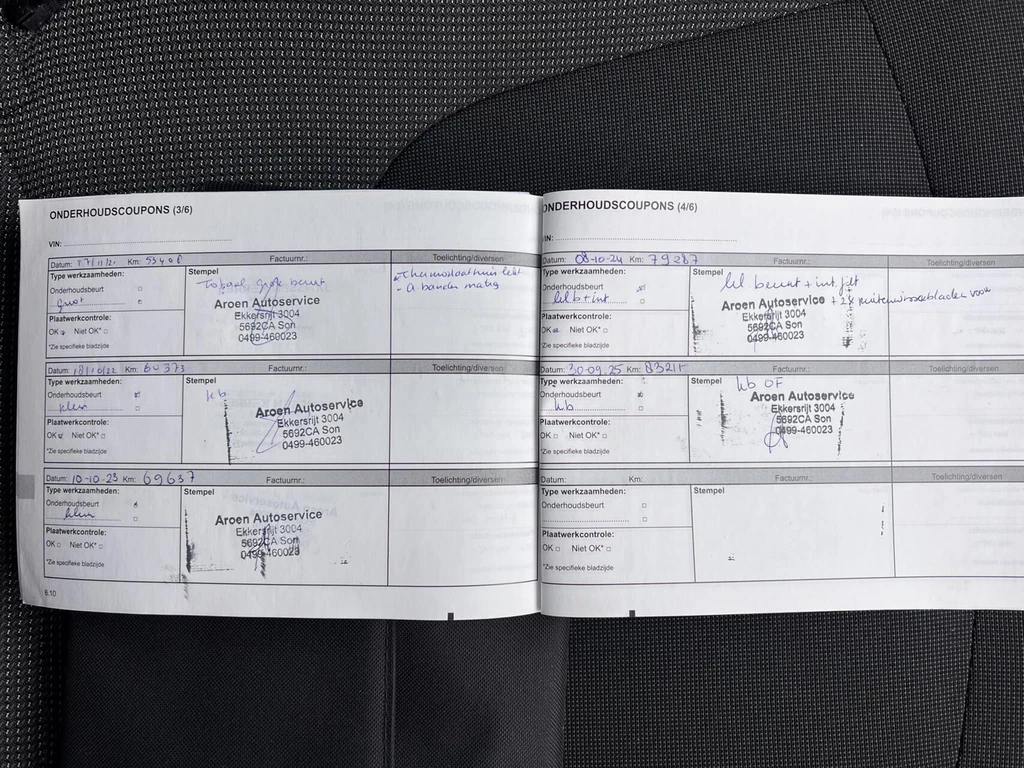 ONDERHOUDSCOUPONS (3/6)
VIN:
Datum: 17/11/21 Km: Factuurnr.: Toelichting/diversen
Type werkzaamheden:
Stempel
Onderhoudsbeurt
groot
grote beurt
- Thermostaathuis lekt
- banden matig
Aroen Autoservice
Ekkersrijt 3004
5692CA Son
0499-460023
Plaatwerkcontrole:
OK Niet OK*
*Zie specifieke bladzijde
Datum: 18/10/22 Km: 60373 Factuurnr.: Toelichting/diversen
Type werkzaamheden:
Stempel
Onderhoudsbeurt
klein
kb
Aroen Autoservice
Ekkersrijt 3004
5692CA Son
0499-460023
Plaatwerkcontrole:
OK Niet OK*
*Zie specifieke bladzijde
Datum: 10-10-23 Km: 69637 Factuurnr.: Toelichting/diversen
Type werkzaamheden:
Stempel
Onderhoudsbeurt
klein
Aroen Autoservice
Ekkersrijt 3004
5692CA Son
0499-460023
Plaatwerkcontrole:
OK Niet OK*
*Zie specifieke bladzijde
6.10
ONDERHOUDSCOUPONS (4/6)
VIN:
Datum: 08-10-24 Km: 79287 Factuurnr.: Toelichting/diversen
Type werkzaamheden:
Stempel
Onderhoudsbeurt
kl b + int
kl beurt + int. filt
+ 2x ruitenwisserbladen voor
Aroen Autoservice
Ekkersrijt 3004
5692CA Son
0499-460023
Plaatwerkcontrole:
OK Niet OK*
*Zie specifieke bladzijde
Datum: 30-09-25 Km: Factuurnr.: Toelichting/diversen
Type werkzaamheden:
Stempel
Onderhoudsbeurt
kb
kb OF
Aroen Autoservice
Ekkersrijt 3004
5692CA Son
0499-460023
Plaatwerkcontrole:
OK Niet OK*
*Zie specifieke bladzijde
Datum: Km: Factuurnr.: Toelichting/diversen
Type werkzaamheden:
Stempel
Onderhoudsbeurt
Plaatwerkcontrole:
OK Niet OK*
*Zie specifieke bladzijde